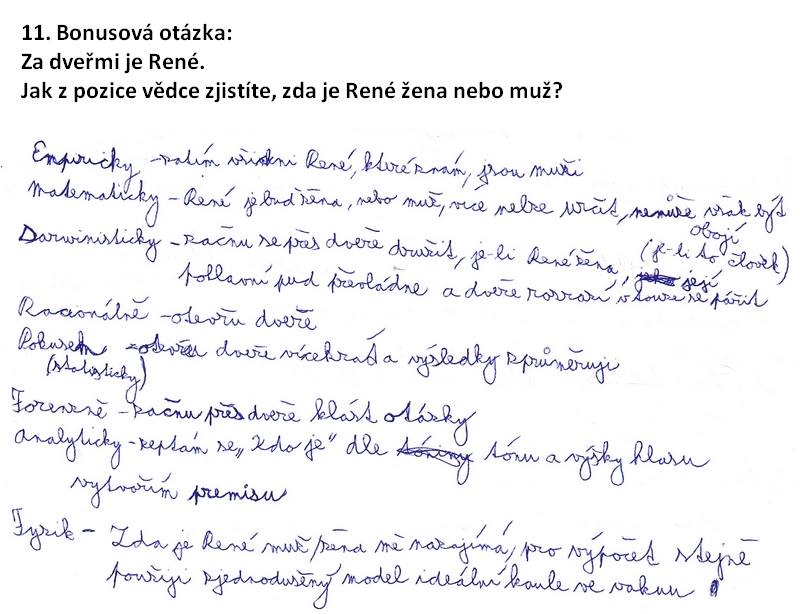 11. Bonusová otázka:
Za dveřmi je René.
Jak z pozice vědce zjistíte, zda je René žena nebo muž?
Empiricky - zatím všichni René, které znám, jsou muži
Matematicky - René je buď žena, nebo muž, více nelze určit, nemůže však být
obojí
Darwinisticky - začnu se přes dveře dvořit, je-li René žena, její
(je-li to člověk)
pohlavní pud převládne a dveře rozrazí v touze se pářit
Racionálně - otevřu dveře
Pokusem - otevřu dveře vícekrát a výsledky zprůměruji
(statisticky)
Forenzně - začnu přes dveře klást otázky
Analyticky - zeptám se „Kdo je“ dle tónu a výšky hlasu
vytvořím premisu
Fyzik - Zda je René muž/žena mě nezajímá, pro výpočet stejně
použiji zjednodušený model ideální koule ve vakuu